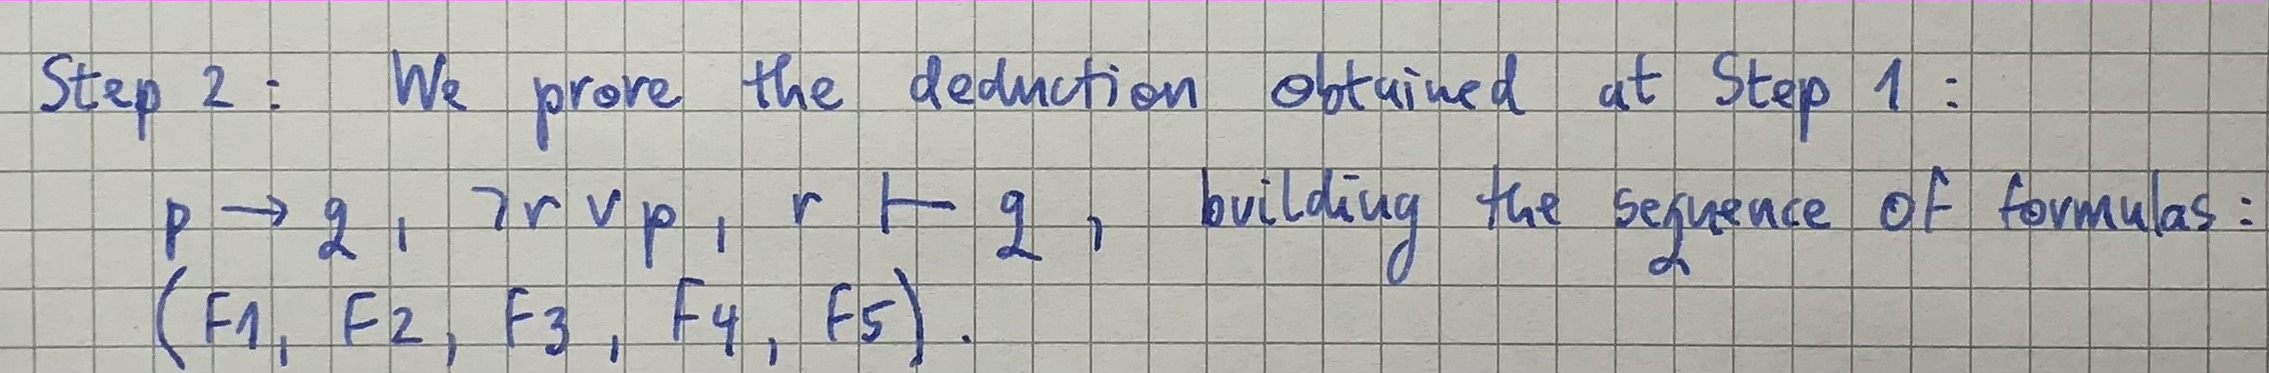 Step 2: We prove the deduction obtained at Step 1:
p → q, ¬r ∨ p, r ⊢ q, building the sequence of formulas:
(F1, F2, F3, F4, F5).